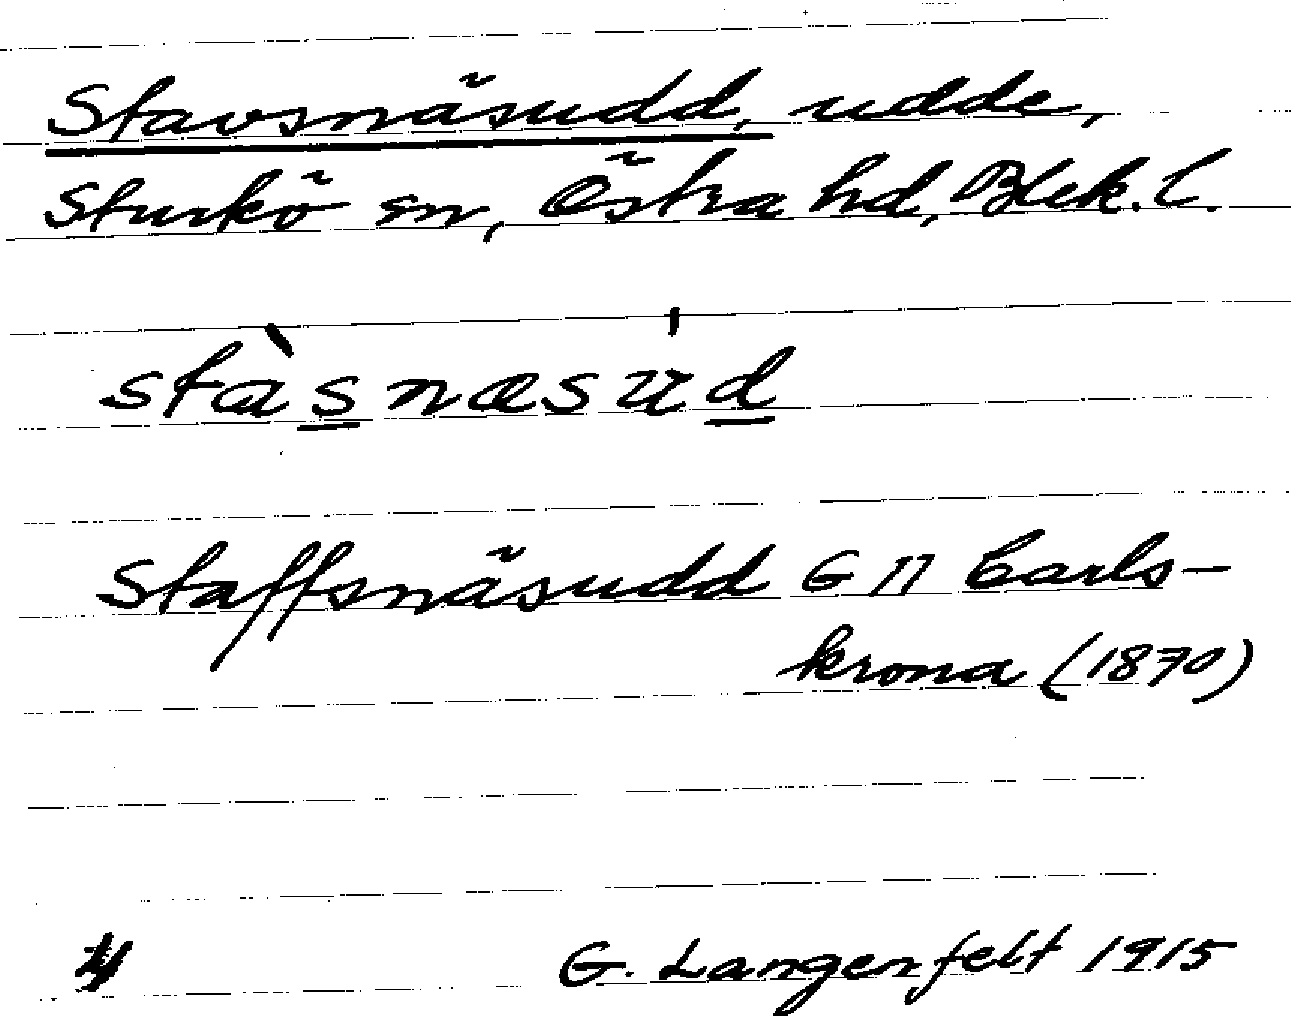 Stavsnäsudd, udde,
Sturkö sn, Östra hd, Blek. l.
stàsnæsúd
Staffsnäsudd G II Carls-
krona (1870)
4
G. Langenfelt 1915